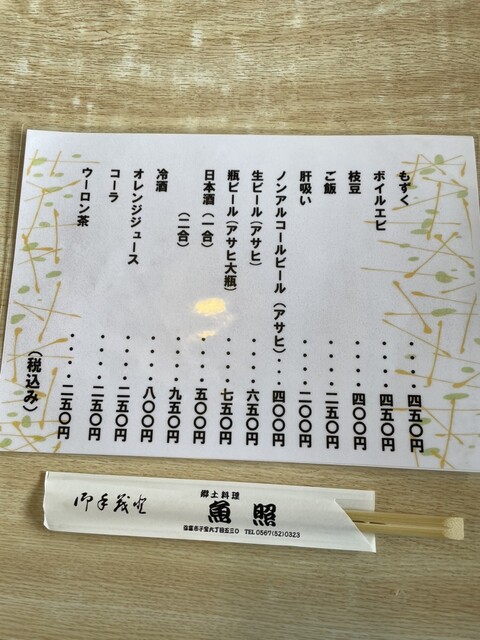 もずく・・・・四五〇円
ボイルエビ・・・・四五〇円
枝豆・・・・四〇〇円
ご飯・・・・二五〇円
肝吸い・・・・二〇〇円
ノンアルコールビール（アサヒ）・・・四〇〇円
生ビール（アサヒ）・・・・六五〇円
瓶ビール（アサヒ大瓶）・・・・七五〇円
日本酒（一合）・・・・五〇〇円
（二合）・・・・九五〇円
冷酒・・・・八〇〇円
オレンジジュース・・・・二五〇円
コーラ・・・・二五〇円
ウーロン茶・・・・二五〇円
（税込み）
御手茂登
郷土料理
魚照
子宝六丁目五三〇 TEL 0567(52)0323